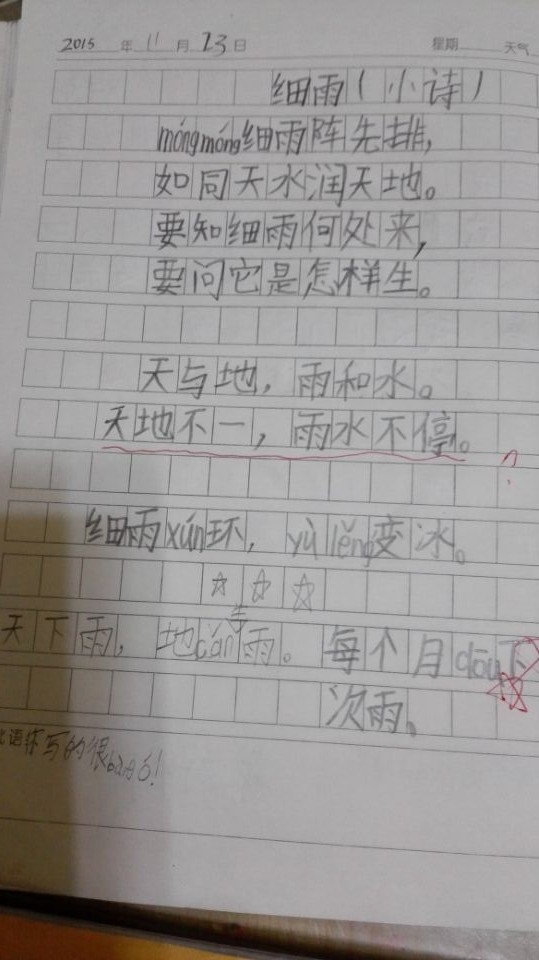 2015 年 11 月 23 日 星期 天气
细雨(小诗)
móngmóng细雨阵先排,
如同天水润天地。
要知细雨何处来,
要问它是怎样生。
天与地,雨和水。
天地不一,雨水不停。
?
细雨xún环,yù lěng变冰。
☆ ☆ ☆
天下雨,地cán雨。每个月dōu下
次雨。
语怀写的很bàng ó!